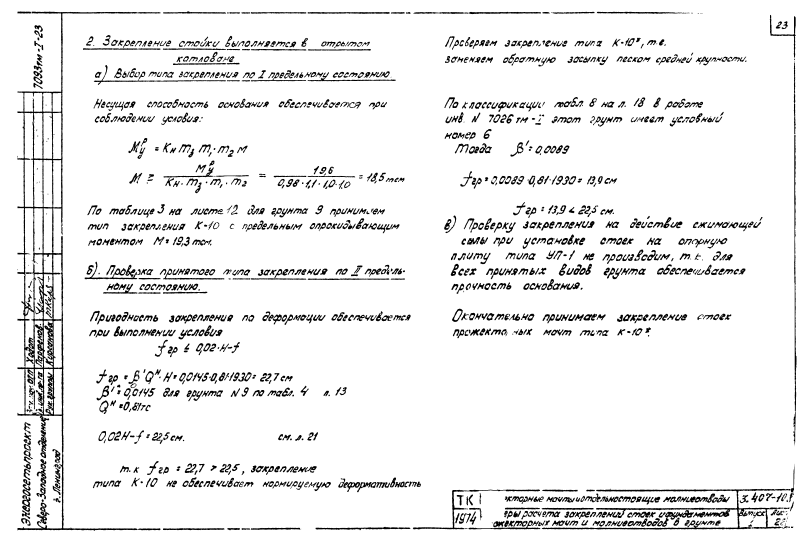 23
7093тм-I-23
2. Закрепление стойки выполняется в отрытом
котловане
а) Выбор типа закрепления по I предельному состоянию
Несущая способность основания обеспечивается при
соблюдении условия:
Mᵖу = Kн m₃ m₁·m₂ M
M ≥ Mᵖу / Kн·m₃·m₁·m₂ = 19,6 / 0,98·1,1·1,0·1.0 = 18,5 тсм
По таблице 3 на листе 12 для грунта 9 принимаем
тип закрепления К-10 с предельным опрокидывающим
моментом M = 19,3 тсм.
б). Проверка принятого типа закрепления по II предель-
ному состоянию.
Пригодность закрепления по деформации обеспечивается
при выполнении условия
fгр ≤ 0,02·H-f
fгр = β'Qᴴ·H = 0,0145·0,81·1930 = 22,7 см
β' = 0,0145 для грунта N9 по табл. 4 л. 13
Qᴴ = 0,81тс
0,02H-f = 22,5 см. см. л. 21
т.к fгр = 22,7 > 22,5, закрепление
типа К-10 не обеспечивает нормируемую деформативность
Проверяем закрепление типа К-10*, т.е.
заменяем обратную засыпку песком средней крупности.
По классификации табл. 8 на л. 18 в работе
инв. N 7026тм-II этот грунт имеет условный
номер 6
Тогда β' = 0,0089
fгр = 0,0089·0,81·1930 = 13,9 см
fгр = 13,9 < 22,5 см.
в) Проверку закрепления на действие сжимающей
силы при установке стоек на опорную
плиту типа УП-1 не производим, т.к. для
всех принятых видов грунта обеспечивается
прочность основания.
Окончательно принимаем закрепление стоек
прожекто ных мачт типа К-10*.
Энергосетьпроект
Северо-Западное отделение
г. Ленинград
ТК
1974
жекторные мачты и отдельностоящие молниеотводы
еры расчета закреплений стоек и фундаментов
ожекторных мачт и молниеотводов в грунте
3.407-10
Выпуск
Лис